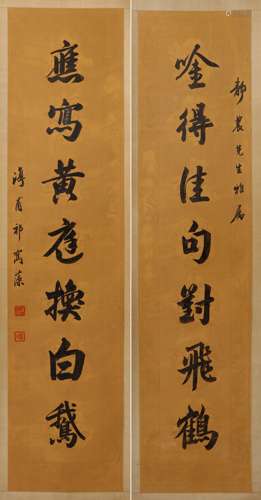 静農先生雅属
唫得佳句對飛鶴
應寫黄庭換白鵞
淳甫祁寯藻